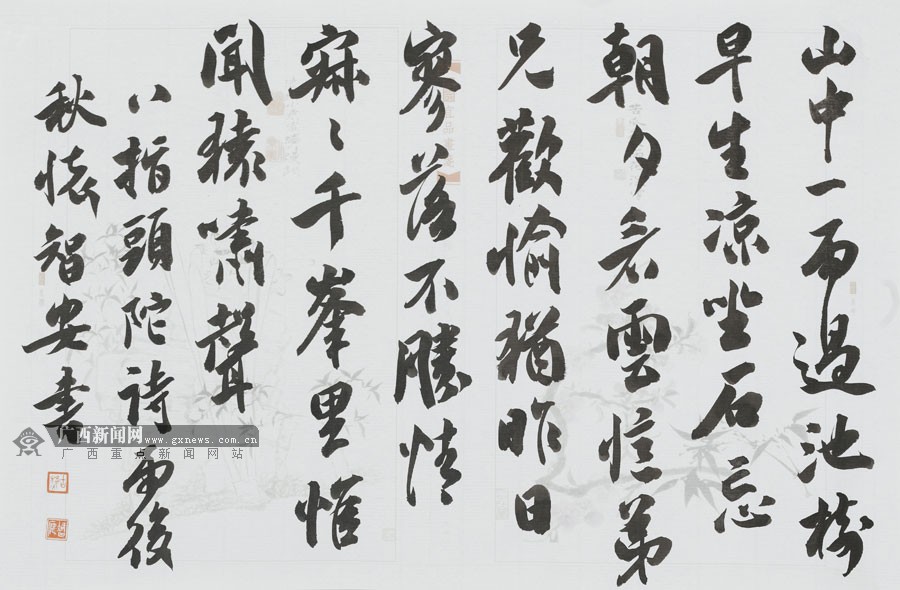 山中一雨過池樹
早生凉坐石忘
朝夕看雲憶弟
兄歡愉猶昨日
寥落不勝情
寂々千峯里惟
聞猿嘯聲
八指頭陀詩雨後
秋懷智安書
广西新闻网 www.gxnews.com.cn
广西重点新闻网站